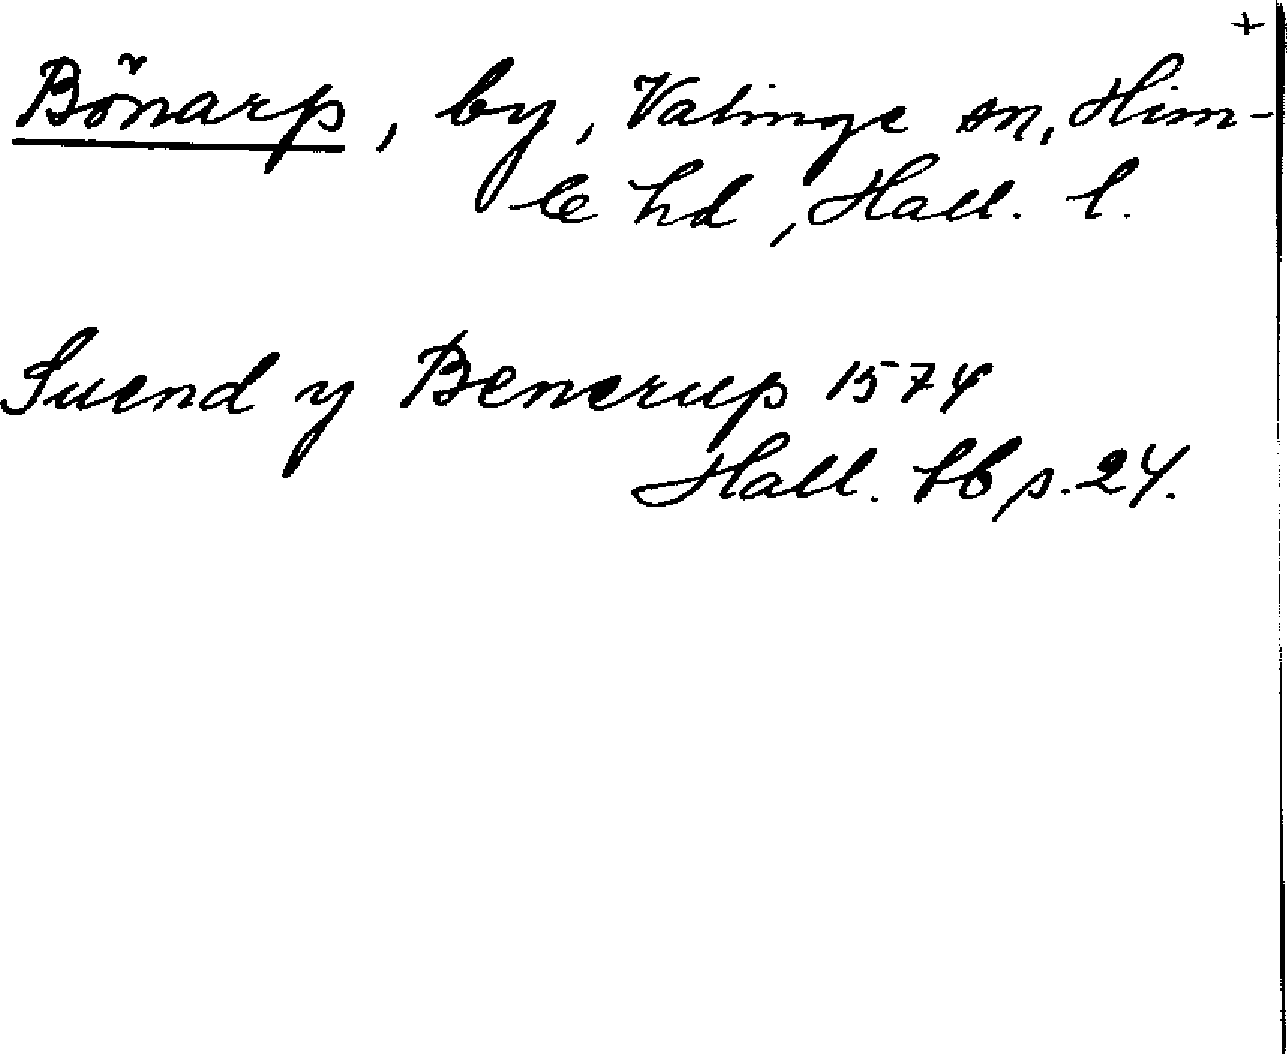 +
Bönarp, by, Valinge sn, Him-
le hd, Hall. l.
Suend y Benerup 1574
Hall. lb, s. 24.